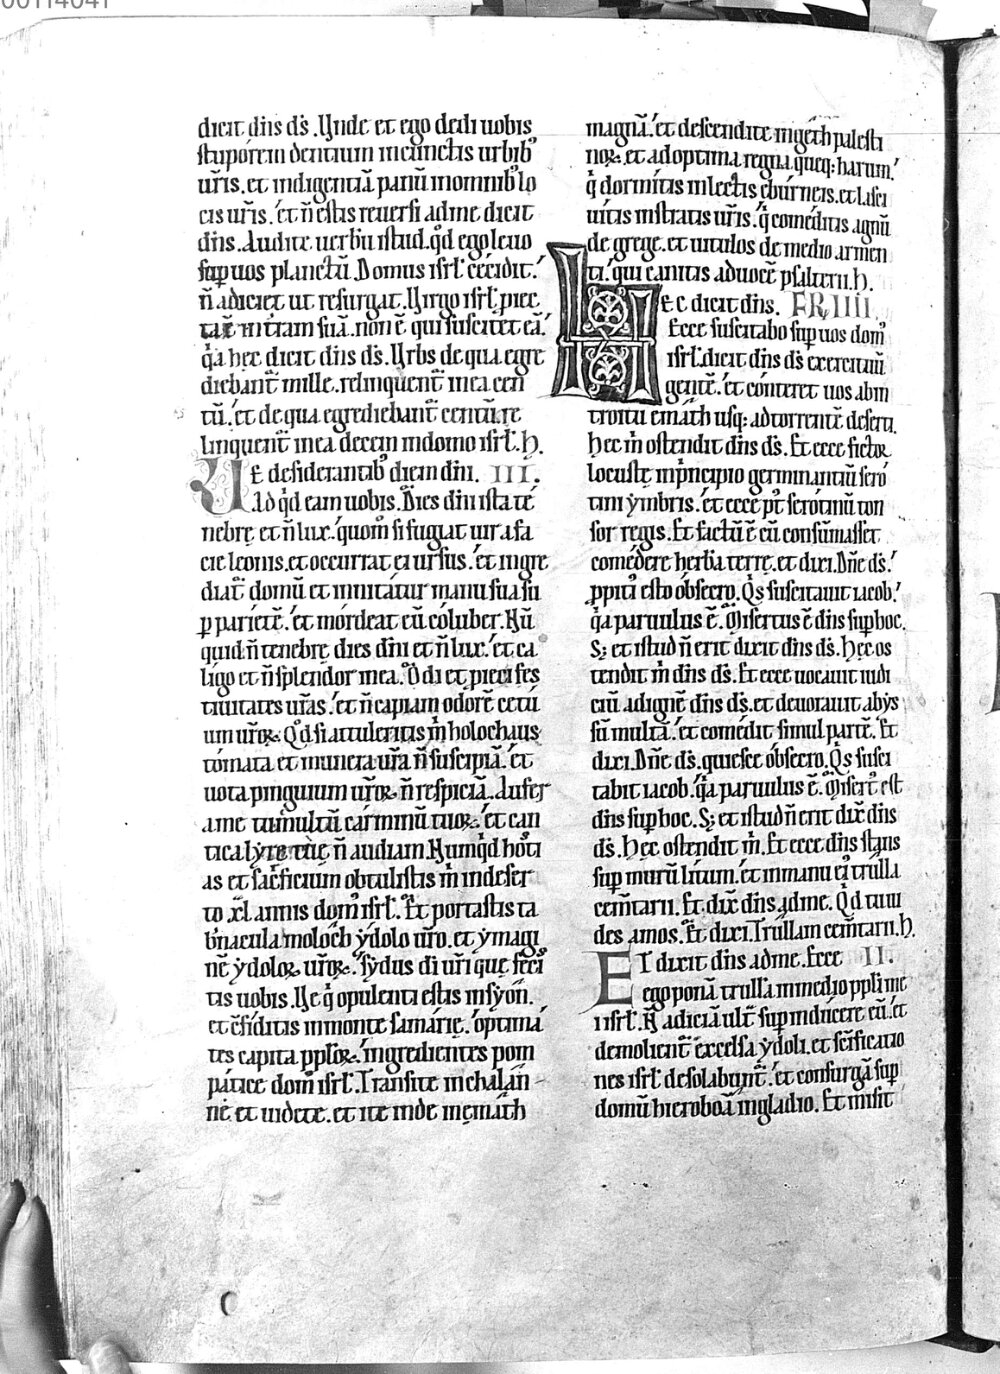 00114041
dicit dn̄s ds̄. Unde et ego dedi uobis
stuporem dentium in cunctis urbibꝰ
ur̄is. et indigentiā panū in omnibꝰ lo
cis ur̄is. et n̄ estis reuersi ad me dicit
dn̄s. Audite uerbū istud. qd̄ ego leuo
sup̄ uos planctū. Domus isrl̄ cecidit.
n̄ adiciet ut resurgat. Uirgo isrl̄ ꝓiec
ta ē in t̄ram suā. non ē qui suscitet eā.
q̄a hec dicit dn̄s ds̄. Urbs de qua egre
diebant᷑ mille. relinquent᷑ in ea cen
tū. et de qua egrediebant᷑ centū. re
linquent᷑ in ea decem in domo isrl̄. H.
UE desiderantibꝰ diem dn̄i. III.
Ad qd̄ eam uobis. Dies dn̄i ista te
nebrę et n̄ lux. quom̊ si fugiat uir a fa
cie leonis. et occurrat ei ursus. et ingre
diat᷑ domū et innitatur manu sua su
ꝑ parietē. et mordeat eū coluber. Nū
quid n̄ tenebrę dies dn̄i et n̄ lux. et ca
ligo et n̄ splendor in ea. Odi et ꝓieci fes
tiuitates ur̄as. et n̄ capiam odorē cetu
um ur̄oꝝ. Qd̄ si attuleritis m̄ holochaus
tomata et munera ur̄a n̄ suscipiā. et
uota pinguium ur̄oꝝ n̄ respiciā. Aufer
a me tumultū carminū tuoꝝ. et can
tica lyrę tuę n̄ audiam. Numqd̄ hosti
as et sac̄ficium obtulistis m̄ in deser
to xl. annis dom̊ isrl̄. Et portastis ta
bn̄acula moloch ydolo ur̄o. et ymagi
nē ydoloꝝ ur̄oꝝ. sydus di ur̄i que feci
tis uobis. Ue q̄ opulenti estis in syon.
et cf̄iditis in monte samarię. optima
tes capita ppl̄oꝝ. ingredientes pom
patice dom̄ isrl̄. Transite in chalan
ne et uidete. et ite inde in emath
magnā. et descendite in geth palesti
noꝝ. et ad optima regna. queq: harum.
q̄ dormitis in lectis eburneis. et lasci
uitis in stratis ur̄is. q̄ comeditis agnū
de grege. et uitulos de medio armen
ti. qui canitis ad uocē psalterii. H.
HEC dicit dn̄s. FR IIII.
Ecce suscitabo sup̄ uos dom̊
isrl̄. dicit dn̄s ds̄ exercituū
gentē. et conteret uos ab in
troitu emath usq: ad torrentē deserti.
Hec m̄ ostendit dn̄s ds̄. Et ecce fictor
locustę in p̄ncipio germinantiū sero
tini ymbris. et ecce pt᷑ serotinū ton
sor regis. Et factū ē cū consūmasset
comedere herba terrę. et dixi. Dn̄e ds̄.
ꝓpiti esto obsecro. Q̄s suscitauit iacob.
q̄a paruulus ē. Misertus ē dn̄s sup̄ hoc.
S; et istud n̄ erit dixit dn̄s ds̄. Hec os
tendit m̄ dn̄s ds̄. Et ecce uocauit iudi
ciū ad ignē dn̄s ds̄. et deuorauit abys
sū multā. et comedit simul partē. Et
dixi. Dn̄e ds̄. quiesce obsecro. Q̄s susci
tabit iacob. q̄a paruulus ē. Misert᷑ est
dn̄s sup̄ hoc. S; et istud n̄ erit dix̄ dn̄s
ds̄. Hec ostendit m̄. Et ecce dn̄s stans
sup̄ murū litum. et in manu ei᷒ trulla
cem̄tarii. Et dix̄ dn̄s ad me. Qd̄ tu ui
des amos. Et dixi. Trullam cem̄tarii. H.
ET dixit dn̄s ad me. Ecce II.
ego ponā trullā in medio ppl̄i me
i isrl̄. N̄ adiciā ult᷑ sup̄inducere eū. et
demolient᷑ excelsa ydoli. et sc̄ificatio
nes isrl̄ desolabunt᷑. et consurgā sup̄
domū hieroboā in gladio. Et misit